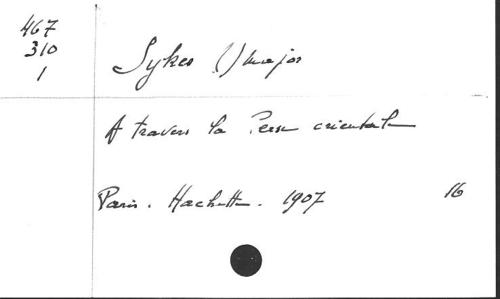 467
310
1
Sykes () major
A travers la Perse orientale
Paris. Hachette. 1907 16